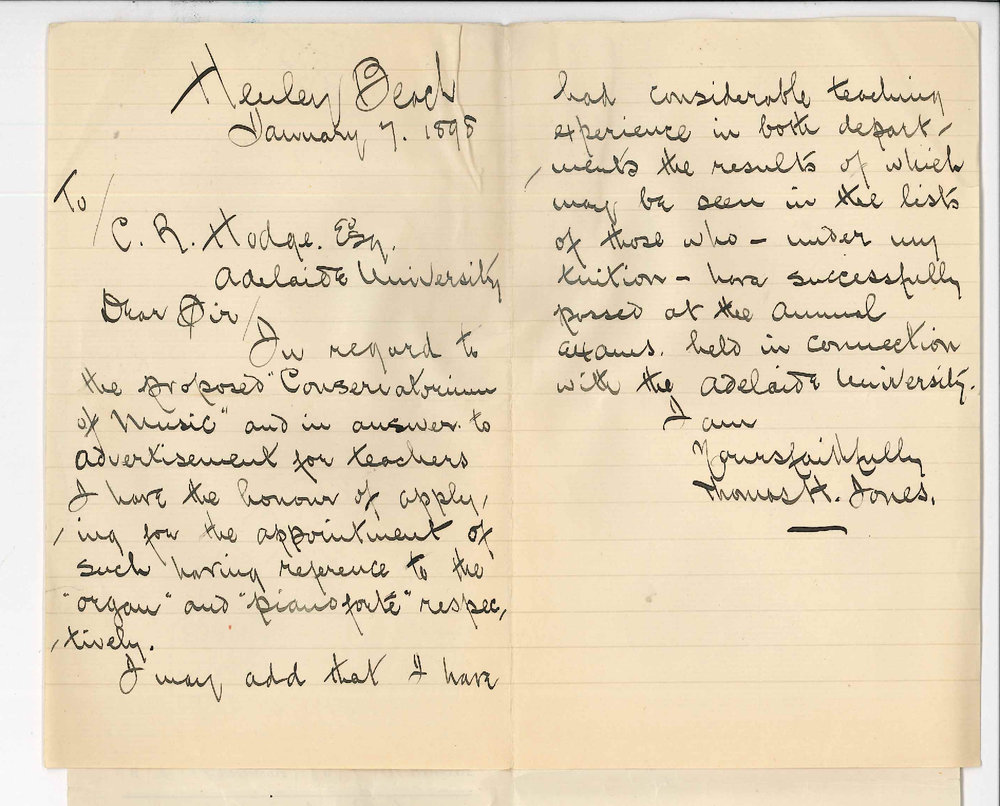 Henley Beach
January 7. 1898
To/
C. R. Hodge. Esq.
Adelaide University
Dear Sir/
In regard to
the proposed "Conservatorium
of Music" and in answer to
advertisement for teachers
I have the honour of apply,
,ing for the appointment of
such having reference to the
"organ" and "pianoforte" respec,
,tively.
I may add that I have
had considerable teaching
experience in both depart,
,ments the results of which
may be seen in the lists
of those who – under my
tuition – have successfully
passed at the annual
exams. held in connection
with the Adelaide University.
I am
Yours faithfully
Thomas H. Jones.